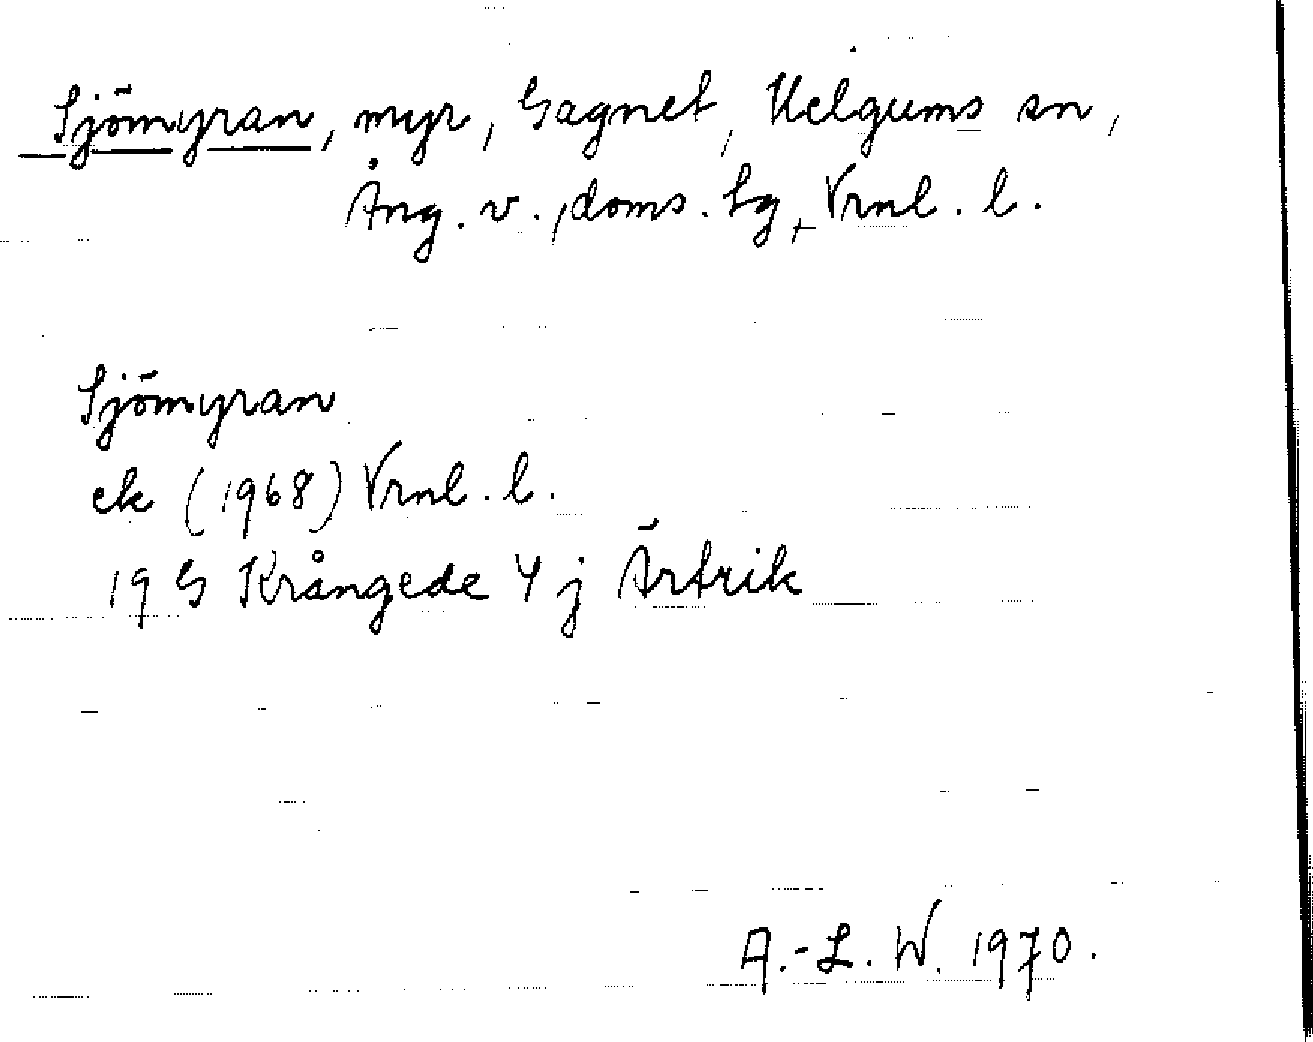 Sjömyran, myr, Gagnet, Helgums sn,
Ång. v., doms. lg, Vrnl. l.
Sjömyran
ek (1968) Vrnl. l.
19 G Krångede 4 j Ärtrik
A.-L. W. 1970.